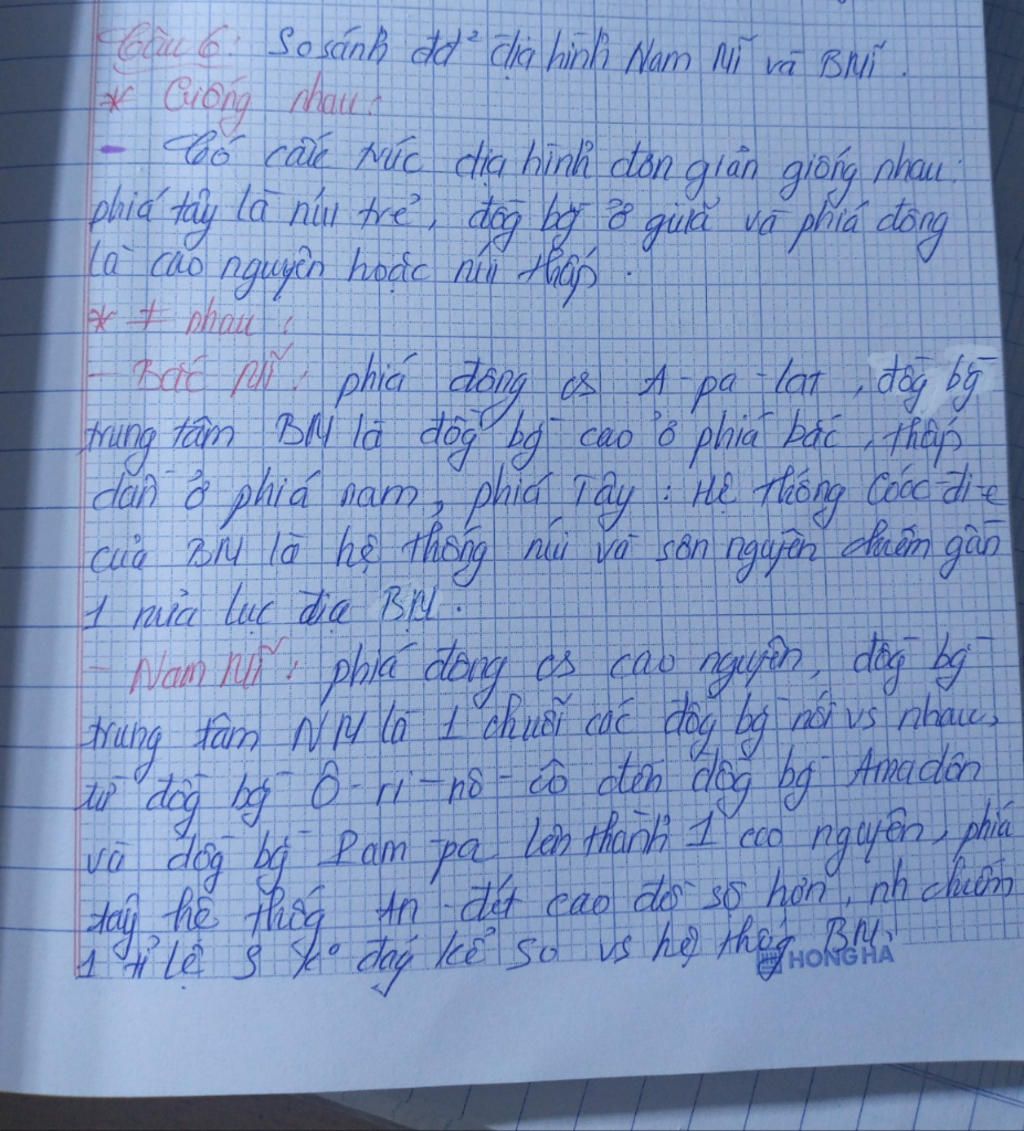 Câu 6: So sánh đđ² địa hình Nam Mĩ và BMĩ.
* Giống nhau:
- Có cấu trúc địa hình đơn giản giống nhau:
phía tây là núi trẻ, đōg bg̀ ở giữa và phía đông
là cao nguyên hoặc núi thấp.
* ≠ nhau:
- Bắc Mĩ: phía đông cs A-pa-lat, đōg bg̀
trung tâm BM là đōg bg̀ cao ở phía bắc, thấp
dần ở phía nam, phía Tây: Hệ thống Coóc-đi-e
của BM là hệ thống núi và sơn nguyên chiếm gần
1 nửa lục địa BM.
- Nam Mĩ: phía đông cs cao nguyên, đōg bg̀
trung tâm NM là 1 chuỗi các đōg bg̀ nối vs nhau,
từ đōg bg̀ Ô-ri-nô-cô đến đōg bg̀ Amadôn
và đōg bg̀ Pam-pa lên thành 1 cao nguyên, phía
tây hệ thốg An-đét cao đồ sộ hơn, nh chiếm
1 tỉ lệ S k° đág kể so vs hệ thốg BM.
HONG HA